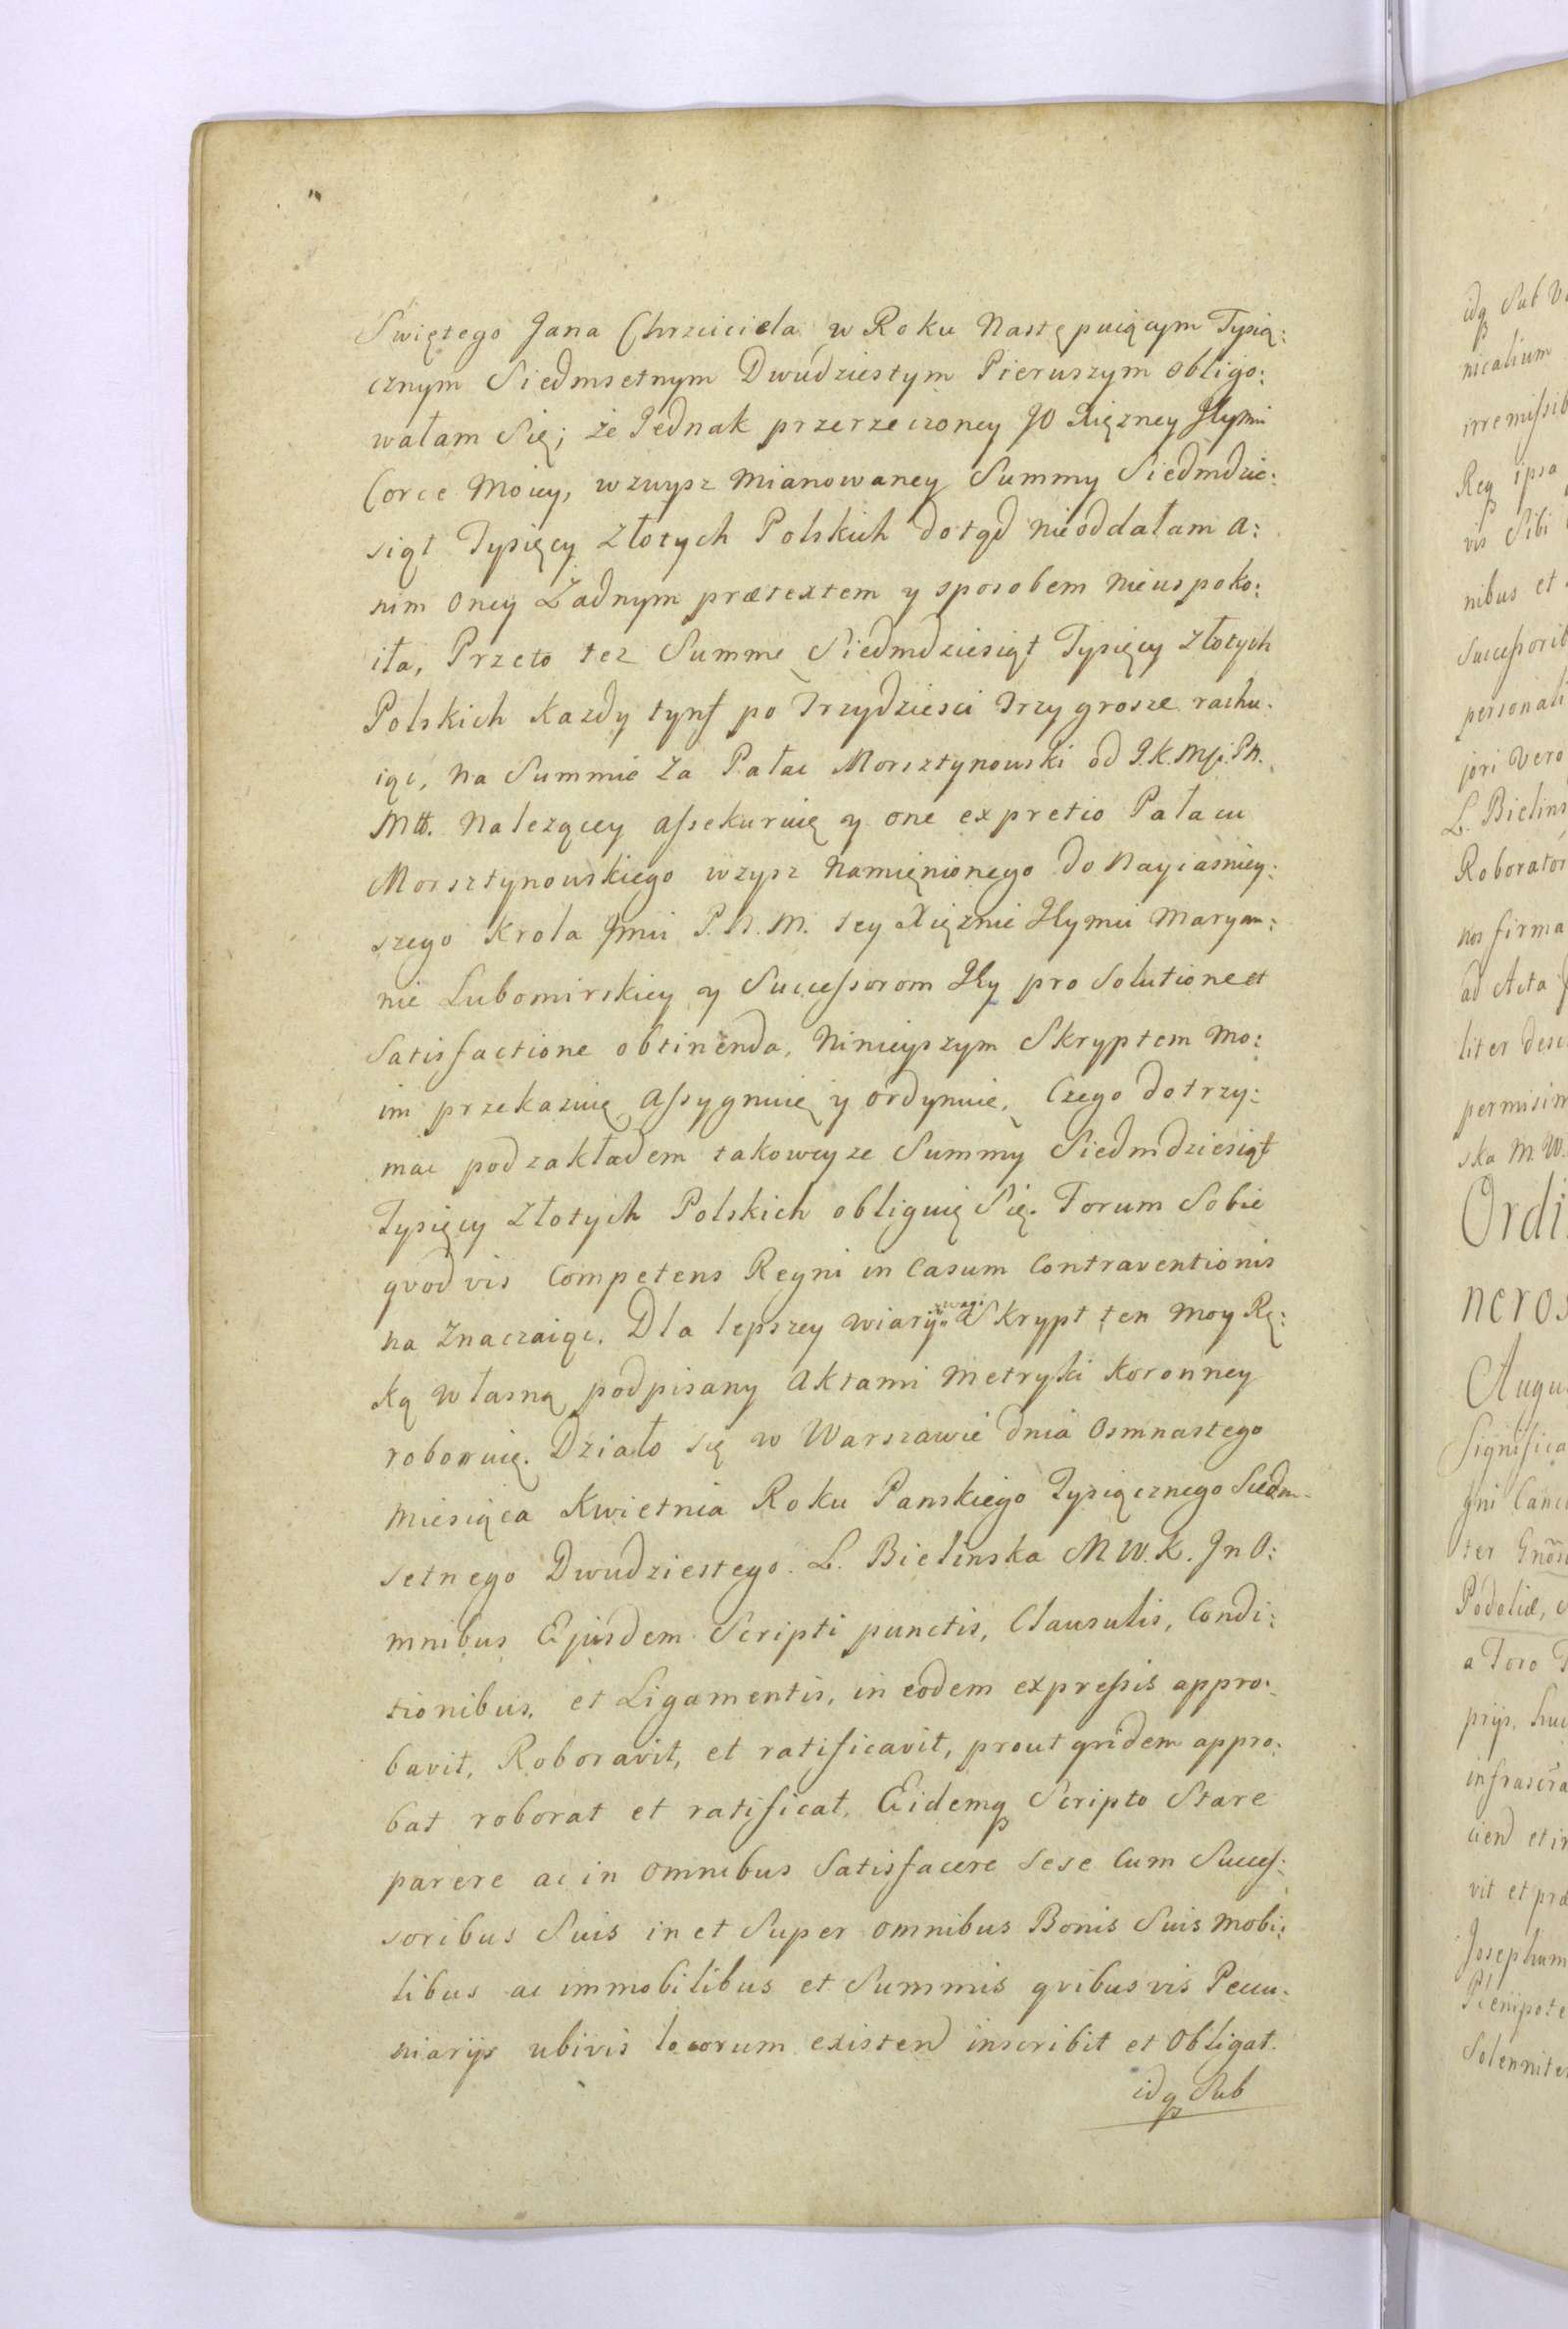 Swiętego Jana Chrzciciela w Roku Następuiącym Tysią:
cznym Siedmsetnym Dwudziestym Pierwszym obligo:
wałam Się; że Jednak przerzeczoney JO Xięzney Jeymci
Corce Moiey, wzwysz Mianowaney Summy Siedmdzie:
siąt Tysięcy Złotych Polskich dotąd nieoddałam a:
nim oney Żadnym prætextem y sposobem nieuspoko:
iła, Przeto tez Summe Siedmdziesiąt Tysięcy Złotych
Polskich Kazdy tynf po Trzydziesci Trzy grosze rachu:
iąc, na Summie Za Pałac Morsztynowski od J.K.Mci. Pn.
Mtt. Nalezącey assekuruię y one ex pretio Pałacu
Morsztynowskiego wzysz Namięnionego do Nayiasniey:
szego Krola Jmci P.N.M. tey Xięznie Jeymci Maryan:
nie Lubomirskiey y Successorom Jey pro Solutione et
Satisfactione obtinenda, Ninieyszym Skryptem Mo:
im przekazuię assygnuię y ordynuię, Czego dotrzy:
mac pod zakładem takoweyze Summy Siedmdziesiąt
Tysięcy Złotych Polskich obliguię Się. Forum Sobie
qvodvis Competens Regni in Casum Contraventionis
na Znaczaiąc. Dla lepszey wiary y wagi Skrypt ten Moy Rę:
ką własną podpisany Aktami Metryki Koronney
roboruię. Działo się w Warszawie dnia Osmnastego
Miesiąca Kwietnia Roku Panskiego Tysiącznego Siedm-
setnego Dwudziestego. L. Bielinska M.W.K. In O:
mnibus Ejusdem Scripti punctis, Clausulis, Condi:
tionibus, et Ligamentis, in eodem expressis appro:
bavit, Roboravit, et ratificavit, prout qvidem appro:
bat roborat et ratificat, Eidemq Scripto Stare
parere ac in omnibus Satisfacere sese Cum Succes:
soribus Suis in et Super omnibus Bonis Suis Mobi:
libus ac immobilibus et Summis qvibusvis Pecu:
niarijs ubivis locorum existend inscribit et Obligat.
idq Sub